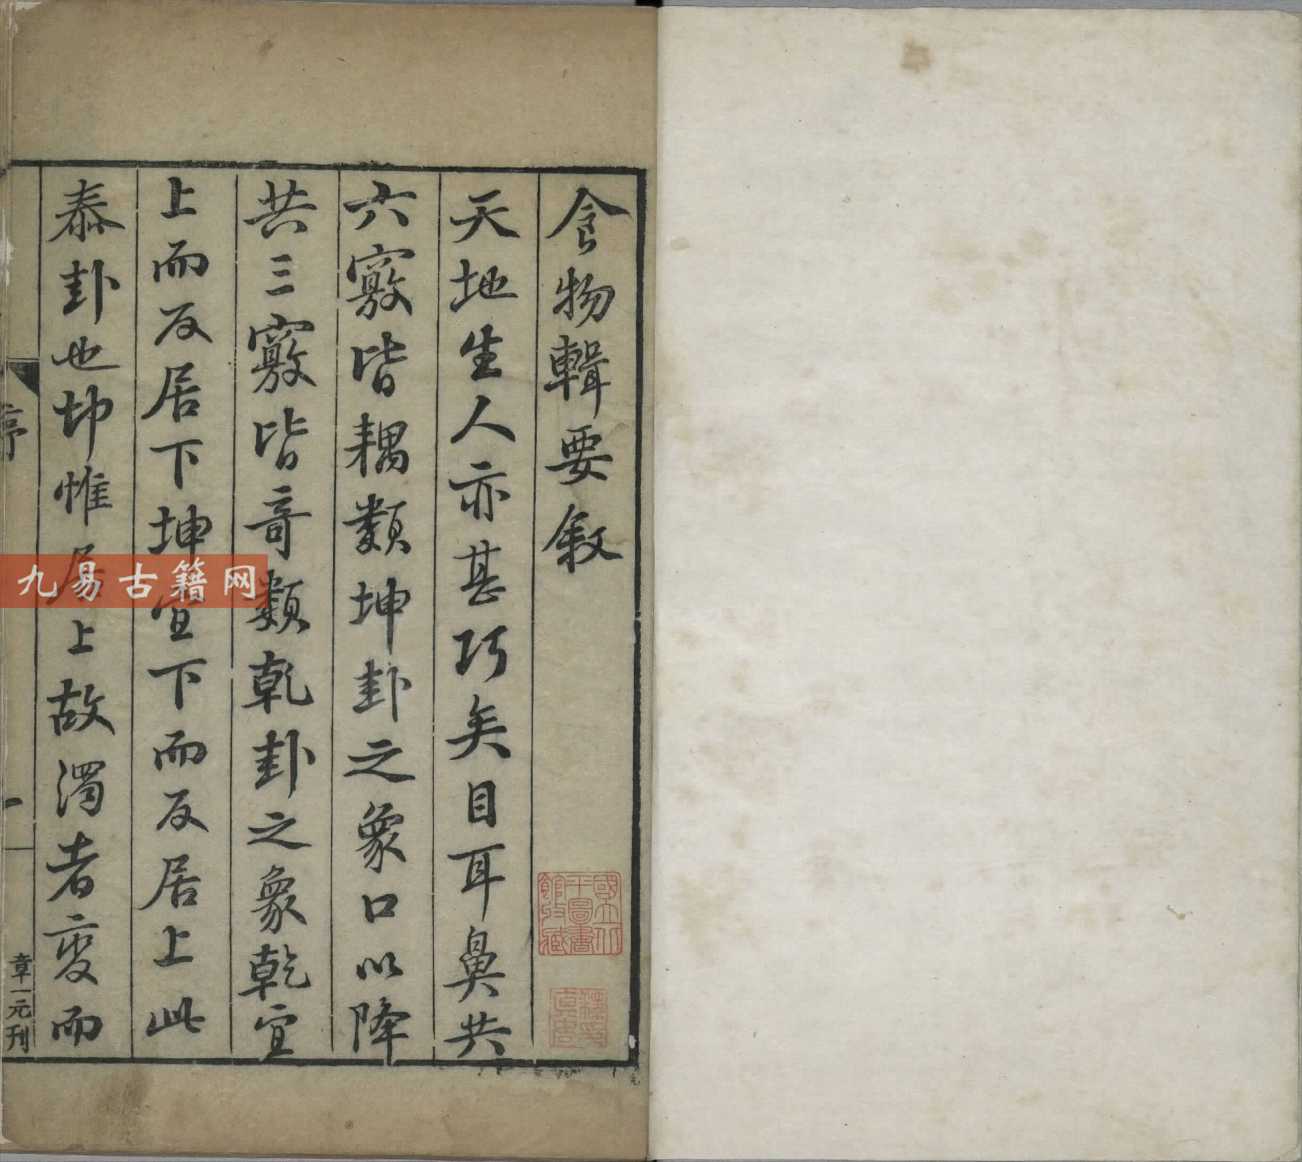 食物輯要叙
天地生人亦甚巧矣目耳鼻共
六竅皆耦類坤卦之象口以降
共三竅皆奇類乾卦之象乾宜
上而反居下坤宜下而反居上此
泰卦也坤惟居上故濁者变而
序
一
章一元刊
國立北平圖書館收藏
九易古籍网